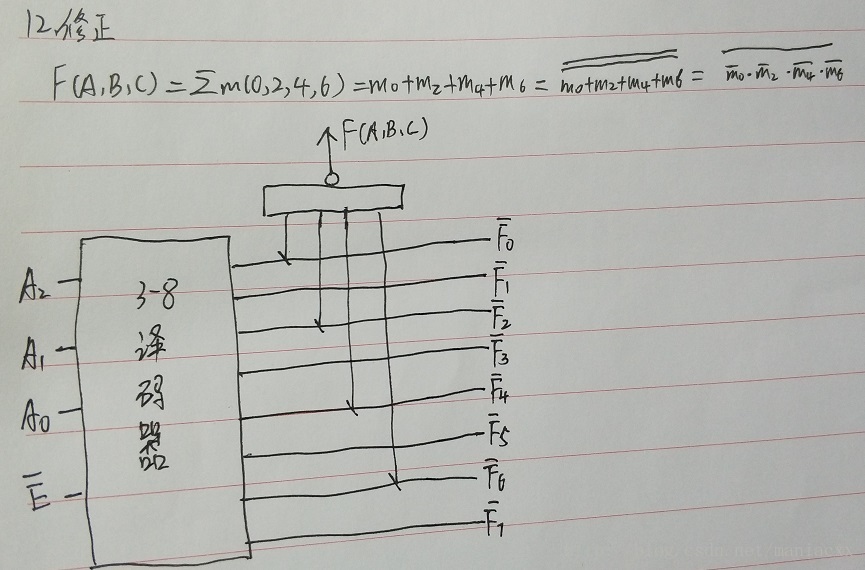 12.修正
F(A,B,C)=Σm(0,2,4,6)=m₀+m₂+m₄+m₆=m̿₀̿+̿m̿₂̿+̿m̿₄̿+̿m̿₆̿=\overline{m̄₀·m̄₂·m̄₄·m̄₆}
F(A,B,C)
A₂
A₁
A₀
Ē
3-8
译
码
器
F̄₀
F̄₁
F̄₂
F̄₃
F̄₄
F̄₅
F̄₆
F̄₇